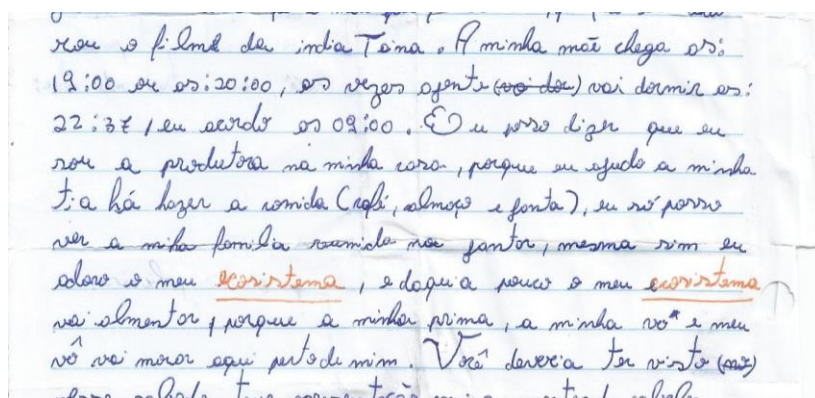 rou o filme da india Tainá. A minha mãe chega as:
19:00 ou as:20:00, as vezes agente (vai do) vai dormir as:
22:37, eu acordo as 09:00. Eu posso dizer que eu
sou a produtora na minha casa, porque eu ajudo a minha
tia há fazer a comida (café, almoço e janta), eu só posso
ver a miha familia reunida na jantar, mesma sim eu
adoro o meu ecosistema, e daqui a pouco o meu ecosistema
vai almentar, porque a minha prima, a minha vo* e meu
vô vai morar aqui perto de mim. Você deveria ter visto